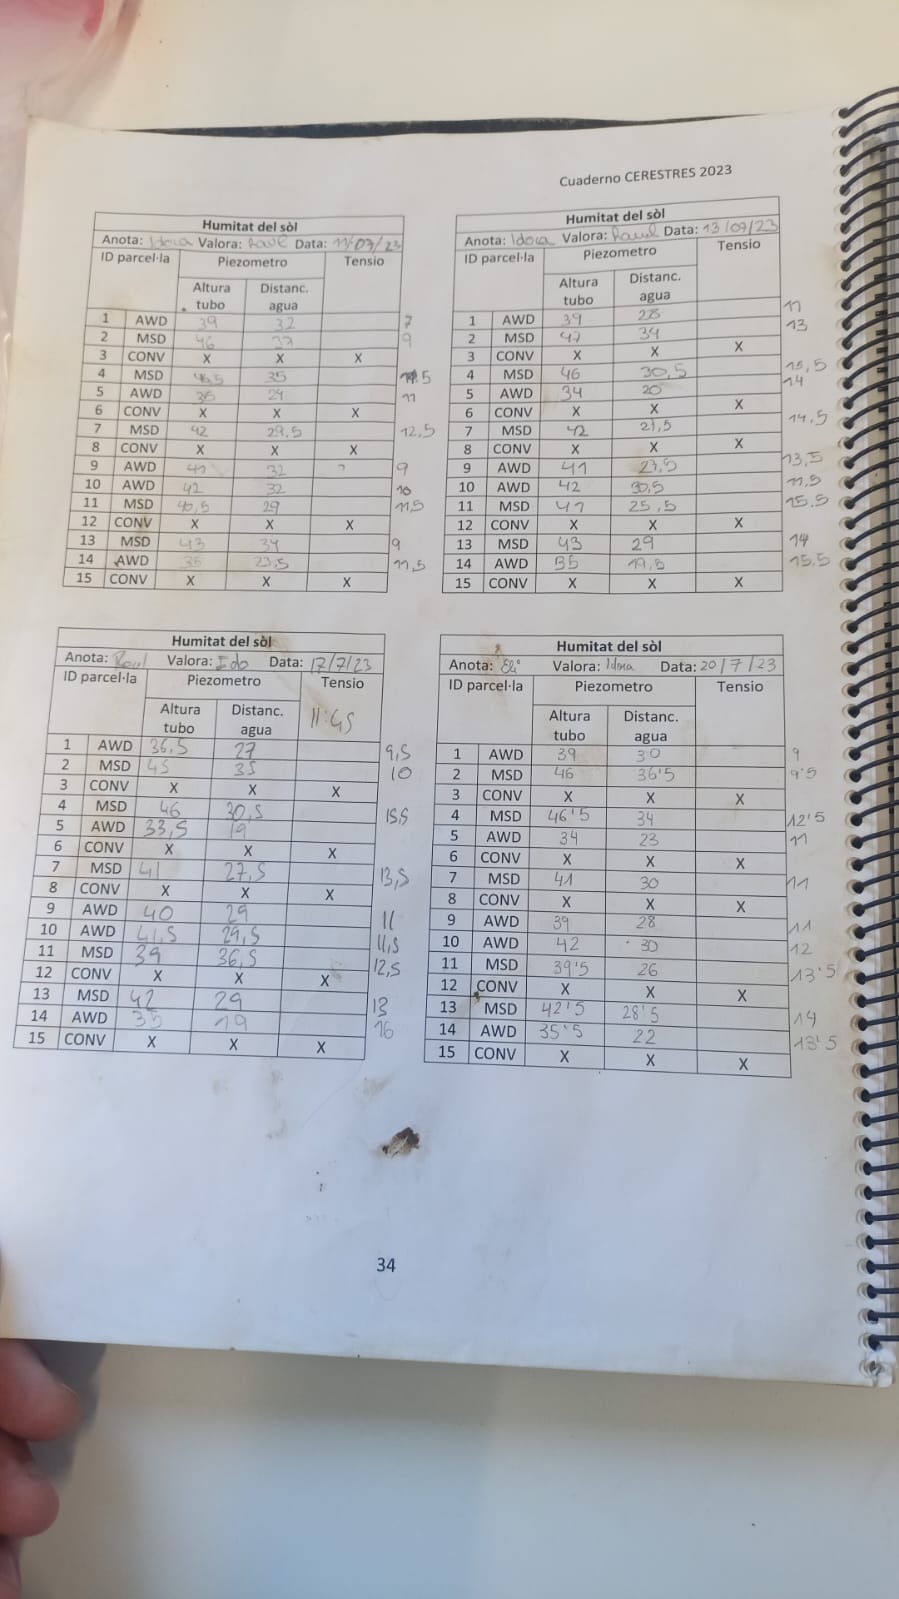 Cuaderno CERESTRES 2023
Humitat del sòl
Anota: Idoia Valora: Raul Data: 11/07/23
ID parcel·la Piezometro Tensio
Altura tubo Distanc. agua
1 AWD 39 32 7
2 MSD 46 37 9
3 CONV X X X
4 MSD 46,5 35 11.5
5 AWD 24 11
6 CONV X X X
7 MSD 42 29,5 12,5
8 CONV X X X
9 AWD 41 32 ? 9
10 AWD 42 32 10
11 MSD 40,5 29 11,5
12 CONV X X X
13 MSD 43 34 9
14 AWD 35 23,5 11,5
15 CONV X X X
Humitat del sòl
Anota: Idoia Valora: Raul Data: 13/07/23
ID parcel·la Piezometro Tensio
Altura tubo Distanc. agua
1 AWD 39 28 11
2 MSD 47 34 13
3 CONV X X X
4 MSD 46 30,5 15,5
5 AWD 34 20 14
6 CONV X X X
7 MSD 42 14,5
8 CONV X X X
9 AWD 41 27,5 13,5
10 AWD 42 30,5 11,5
11 MSD 41 25,5 15.5
12 CONV X X X
13 MSD 43 29 14
14 AWD 35 19,5 15.5
15 CONV X X X
Humitat del sòl
Anota: Raul Valora: Ido Data: 17/7/23
ID parcel·la Piezometro Tensio
Altura tubo Distanc. agua 11:45
1 AWD 36,5 27 9,5
2 MSD 45 35 10
3 CONV X X X
4 MSD 46 30,5 15,5
5 AWD 33,5 19
6 CONV X X X
7 MSD 41 27,5 13,5
8 CONV X X X
9 AWD 40 29 11
10 AWD 41,5 29,5 11,5
11 MSD 39 36,5 12,5
12 CONV X X X
13 MSD 42 29 13
14 AWD 35 19 16
15 CONV X X X
Humitat del sòl
Anota: Eli Valora: Idoia Data: 20/7/23
ID parcel·la Piezometro Tensio
Altura tubo Distanc. agua
1 AWD 39 30 9
2 MSD 46 36'5 9'5
3 CONV X X X
4 MSD 46'5 34 12'5
5 AWD 34 23 11
6 CONV X X X
7 MSD 41 30 11
8 CONV X X X
9 AWD 39 28 11
10 AWD 42 30 12
11 MSD 39'5 26 13'5
12 CONV X X X
13 MSD 42'5 28'5 14
14 AWD 35'5 22 13'5
15 CONV X X X
34